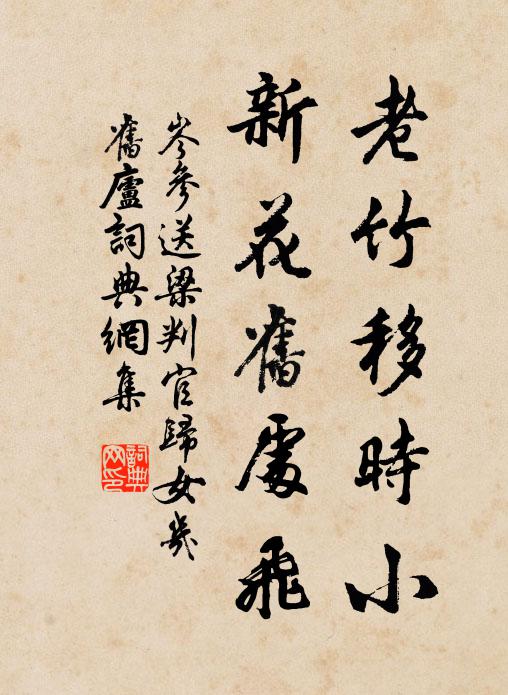 老竹移時小
新花舊處飛
岑參送梁判官歸女几
舊廬詞典網集
詞典網印